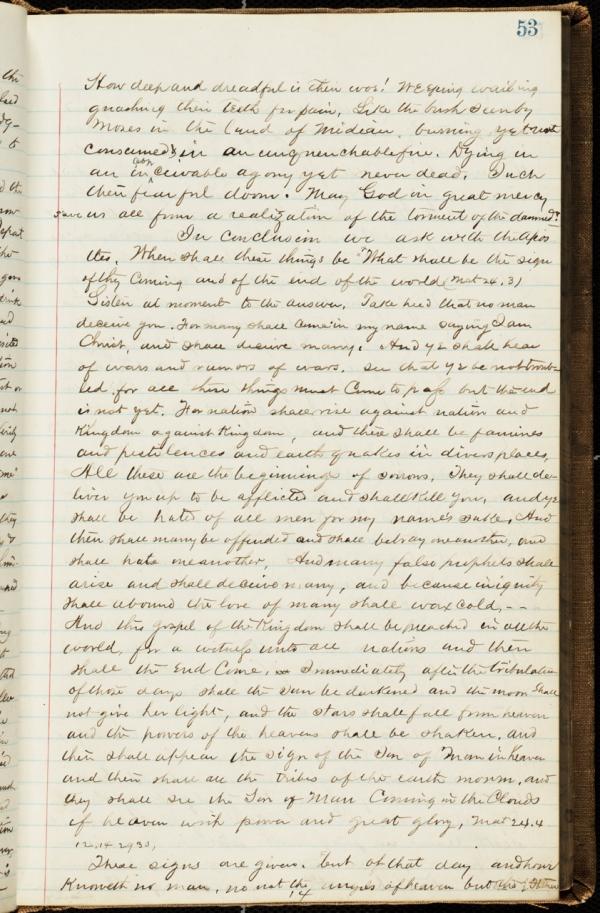 53
How deep and dreadful is their woe! Weeping wailing
gnashing their teeth for pain, Like the bush seen by
Moses in the land of Midean, burning yet not
consumed, in an unquenchable fire. Dying in
an inconceivable agony yet never dead. Such
their fearful doom. May God in great mercy
save us all from a realization of the torment of the damned.
In conclusion we ask with the Apos
tles. When shall these things be "What shall be the sign
of thy Coming and of the end of the world (Mat 24,3)
Listen at moment to the answer. Take heed that no man
deceive you. For many shall come in my name saying I am
Christ, and shall deceive many. And ye shall hear
of wars and rumors of wars. See that ye be not troub-
led for all these things must Come to pass but the end
is not yet. For nation shall rise against nation and
Kingdom against Kingdom, and there shall be famines
and pestilences and earth quakes in divers places,
All these are the beginning of sorrows. They shall de-
liver you up to be afflicted and shall kill you, and ye
shall be hated of all men for my name's sake, And
then shall many be offended and shall betray one another, and
shall hate one another, And many false prophets shall
arise and shall deceive many, and because iniquity
shall abound the love of many shall wax cold, --
And this gospel of the Kingdom shall be preached in all the
world, for a witness unto all nations and then
shall the End Come. Immediately after the tribulation
of those days shall the Sun be darkened and the moon shall
not give her light, and the stars shall fall from heaven
and the powers of the heavens shall be shaken, and
then shall appear the sign of the Son of Man in heaven
and then shall all the tribes of the earth mourn, and
they shall see the Son of Man Coming in the Clouds
of heaven with power and great glory, Mat 24.4
12,14 29 30,
These signs are given. but of that day and hour
Knoweth no man, no not the angels of heaven but